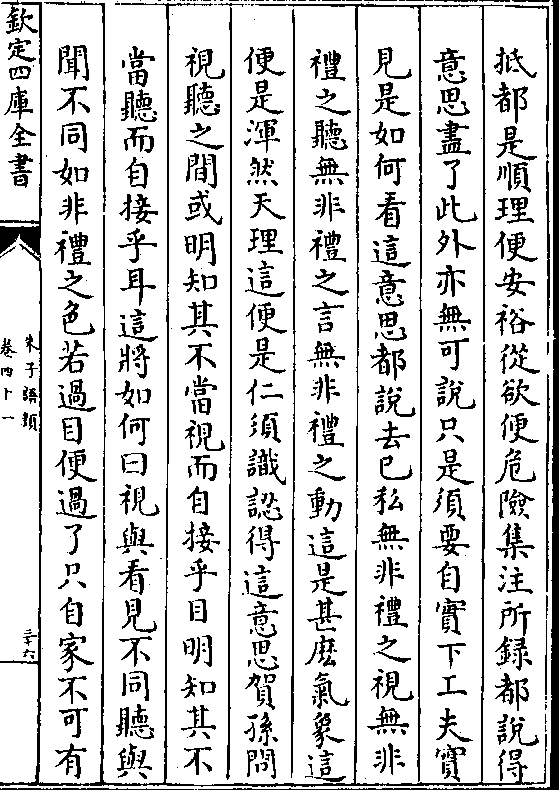 抵都是順理便安裕從欲便危險集注所録都說得
意思盡了此外亦無可說只是須要自實下工夫實
見是如何看這意思都說去已私無非禮之視無非
禮之聽無非禮之言無非禮之動這是甚麽氣象這
便是渾然天理這便是仁須識認得這意思賀孫問
視聽之間或明知其不當視而自接乎目明知其不
當聽而自接乎耳這將如何曰視與看見不同聽與
聞不同如非禮之色若過目便過了只自家不可有
欽定四庫全書
朱子語類
卷四十一
三六